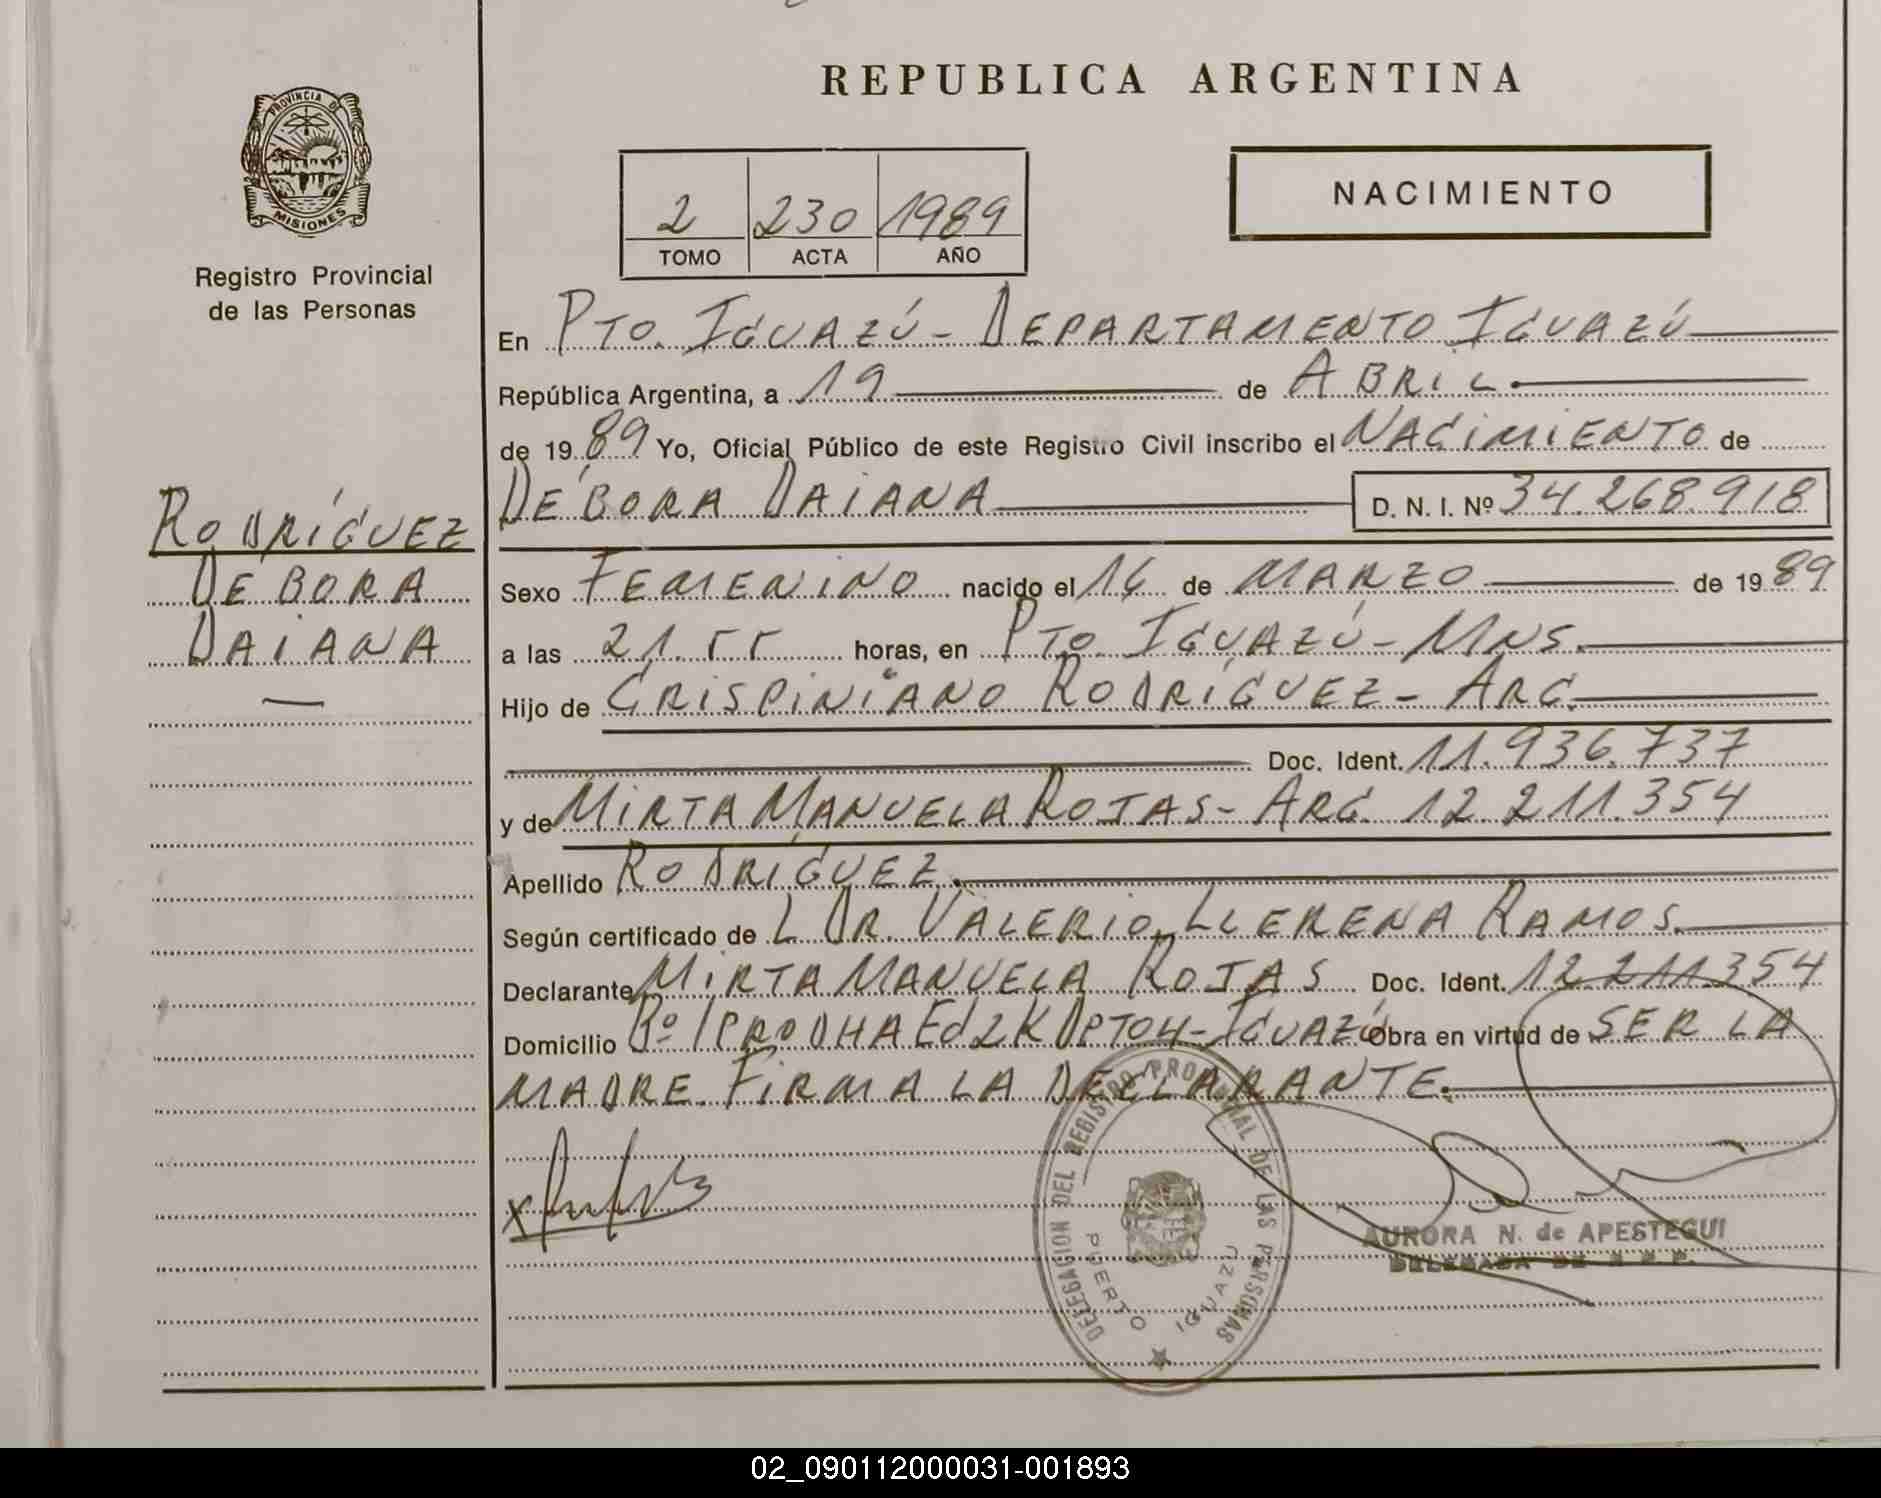 REPUBLICA ARGENTINA
PROVINCIA DE
MISIONES
Registro Provincial
de las Personas
2 230 1989
TOMO ACTA AÑO
NACIMIENTO
En PTO. IGUAZÚ - DEPARTAMENTO IGUAZÚ
República Argentina, a 19 de ABRIL.
de 1989 Yo, Oficial Público de este Registro Civil inscribo el NACIMIENTO de
DÉBORA DAIANA D. N. I. Nº 34.268.918
RODRÍGUEZ
DEBORA
DAIANA
Sexo FEMENINO nacido el de MARZO de 1989
a las 21.55 horas, en PTO. IGUAZÚ - MNS.
Hijo de CRISPINIANO RODRÍGUEZ - ARG.
Doc. Ident. 11.936.737
y de MIRTA MANUELA ROJAS - ARG. 12.211.354
Apellido RODRÍGUEZ.
Según certificado de L DR. VALERIO LLERENA RAMOS.
Declarante MIRTA MANUELA ROJAS Doc. Ident. 12.211.354
Domicilio Bº IPRODHA Ed 2K DPTO 4 - IGUAZÚ Obra en virtud de SER LA
MADRE. FIRMA LA DECLARANTE.
DELEGACION DEL REGISTRO PROVINCIAL DE LAS PERSONAS
PUERTO IGUAZU
AURORA N. de APESTEGUI
DELEGADA DE R.P.P.
02_090112000031-001893